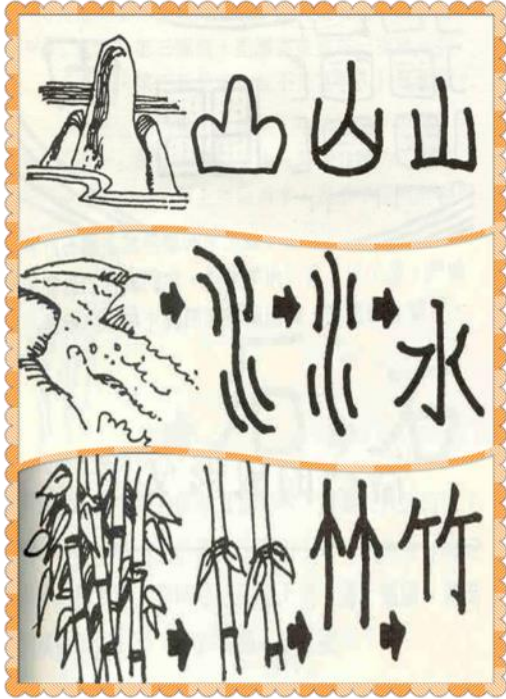 山
水
竹